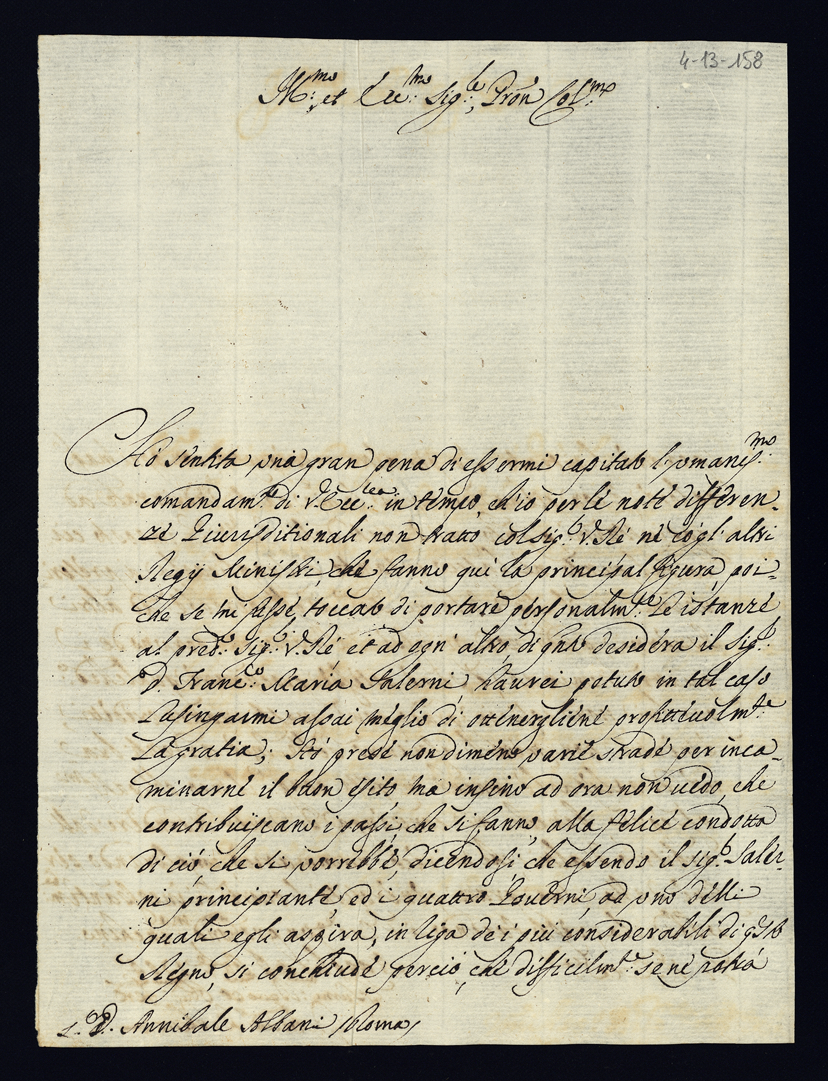 4-13-158
Ill:mo et Ecc:mo Sig:re, Pron Col:mo
Hò sentita una gran pena di essermi capitato l'umaniss:mo
comandam:to di V. Ecc:za in tempo, ch'io per le note differen-
ze Giurisditionali non tratto col sig:r V. Ré ne cogl'altri
Regij Ministri, che fanno quì la principal figura poi-
che se mi fosse toccato di portare personalm:te le istanze
al pred:o Sig:r V. Ré et ad ogn'altro di q:to desidera il sig:r
D. Franc:co Maria Salerni haurei potuto in tal caso
lusingarmi assai meglio di ottenergliene profittevolm:te
la gratia; Hò prese nondimeno varie strade per inca-
minarne il buon esito ma insino ad ora non uedo, che
contribuiscano i passi, che si fanno alla felice condotta
di ciò, che si vorrebbe, dicendosi che essendo il sig:r Saler-
ni principiante ed i quattro Governi, ad uno delli
quali egli aspira, in riga de i più considerabili di q:sto
Regno, si conchiude perciò, che difficilm:te se ne potrà
S.r D. Annibale Albani Roma